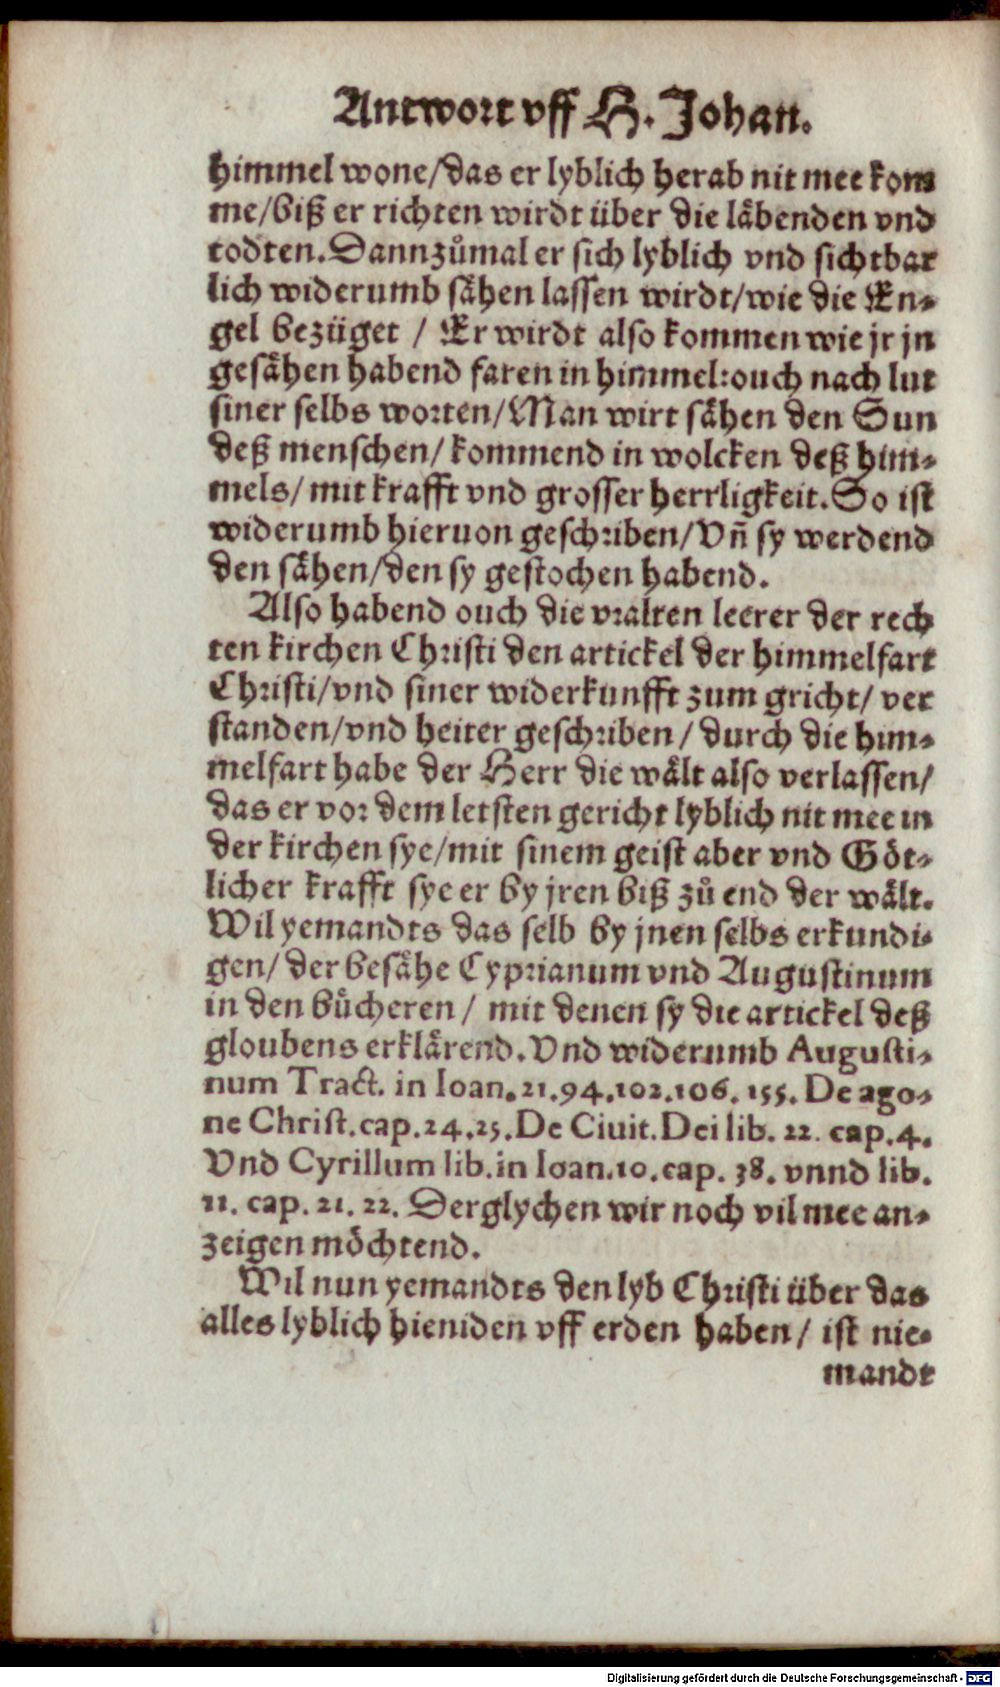 Antwort vff H. Johan.
himmel wone/das er lyblich herab nit mee kom
me/biß er richten wirdt über die läbenden vnd
todten. Dannzůmal er sich lyblich vnd sichtbar
lich widerumb sähen lassen wirdt/wie die En-
gel bezüget / Er wirdt also kommen wie jr jn
gesähen habend faren in himmel: ouch nach lut
siner selbs worten/Man wirt sähen den Sun
deß menschen/ kommend in wolcken deß him-
mels/ mit krafft vnd grosser herrligkeit. So ist
widerumb hieruon geschriben/Vñ sy werdend
den sähen/den sy gestochen habend.
Also habend ouch die vralten leerer der rech
ten kirchen Christi den artickel der himmelfart
Christi/vnd siner widerkunfft zum gricht/ ver
standen/vnd heiter geschriben / durch die him-
melfart habe der Herr die wält also verlassen/
das er vor dem letsten gericht lyblich nit mee in
der kirchen sye/mit sinem geist aber vnd Göt-
licher krafft sye er by jren biß zů end der wält.
Wil yemandts das selb by jnen selbs erkundi-
gen/ der besähe Cyprianum vnd Augustinum
in den bůcheren / mit denen sy die artickel deß
gloubens erklärend. Vnd widerumb Augusti-
num Tract. in Ioan. 21. 94. 102. 106. 155. De ago-
ne Christ. cap. 24. 25. De Ciuit. Dei lib. 22. cap. 4.
Vnd Cyrillum lib. in Ioan. 10. cap. 38. vnnd lib.
11. cap. 21. 22. Derglychen wir noch vil mee an-
zeigen möchtend.
Wil nun yemandts den lyb Christi über das
alles lyblich hieniden vff erden haben/ ist nie-
mandt
Digitalisierung gefördert durch die Deutsche Forschungsgemeinschaft - DFG